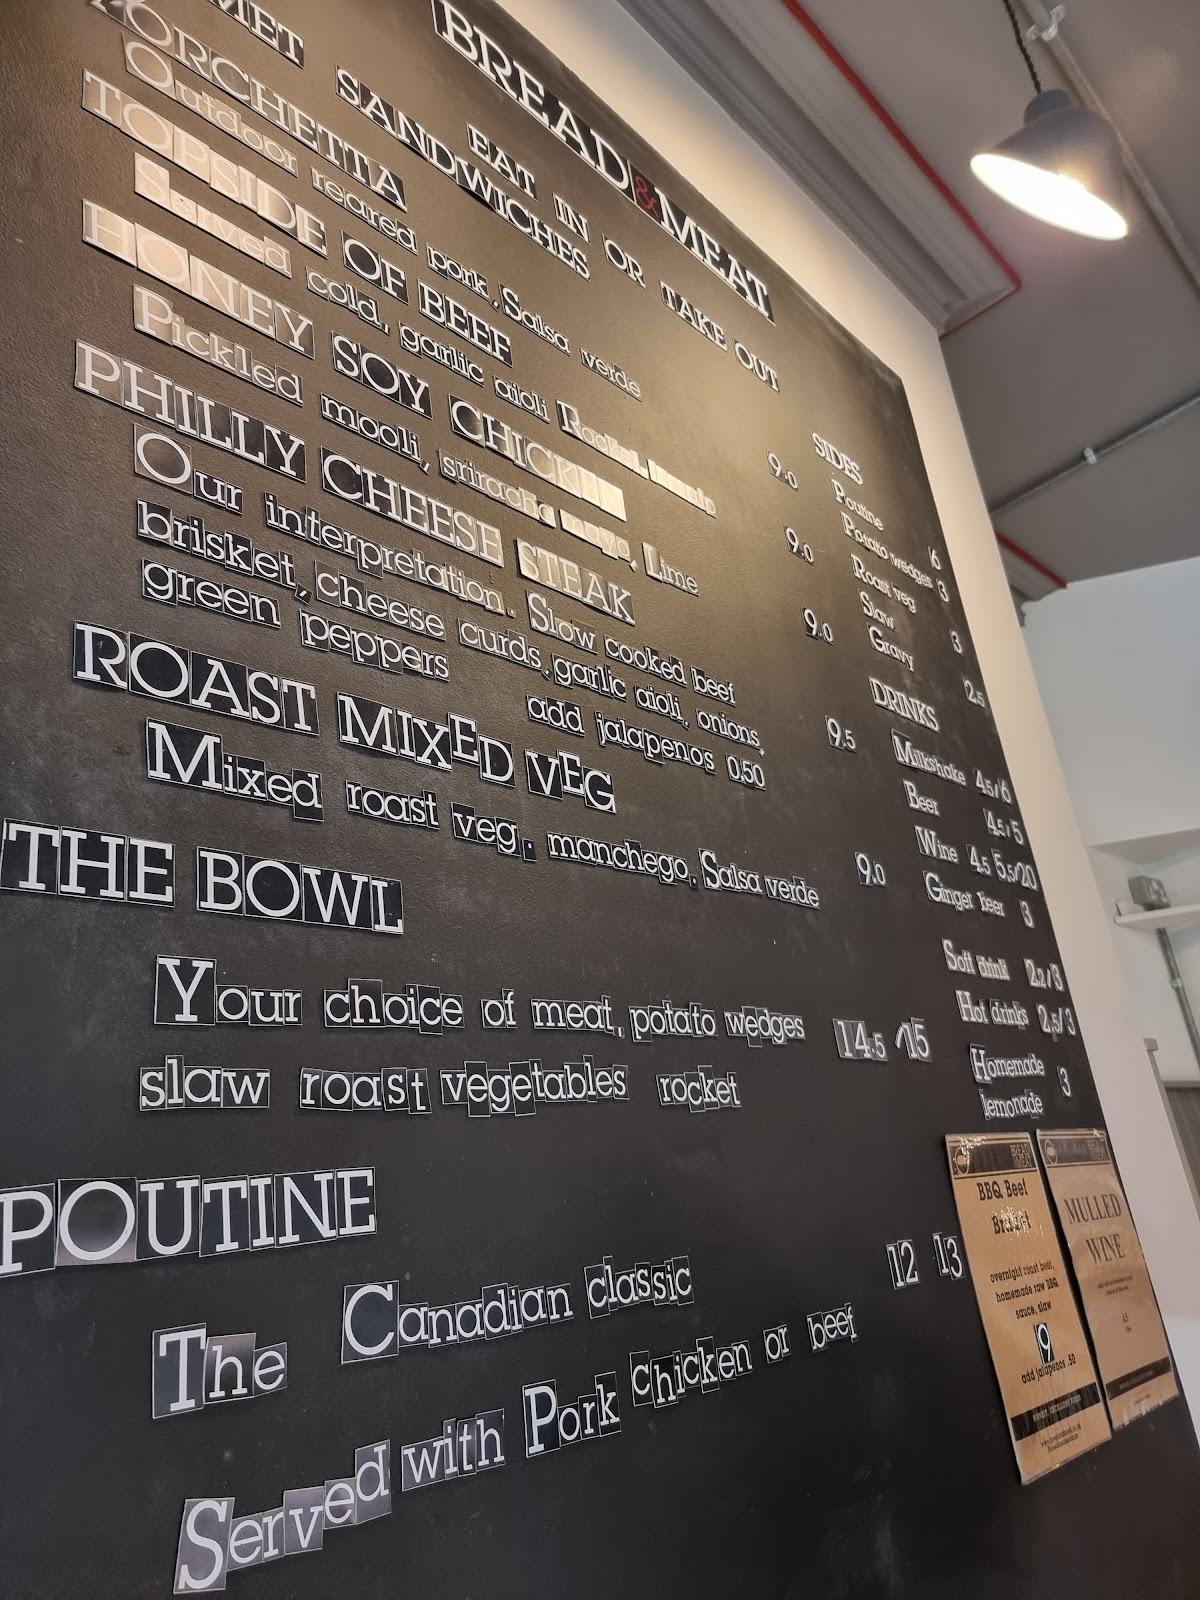 BREAD & MEAT
EAT IN OR TAKE OUT
SANDWICHES
PORCHETTA
Outdoor reared pork, Salsa verde 9.0
TOPSIDE OF BEEF
Served cold, garlic aioli Rocket, 9.0
HONEY SOY CHICKEN
Pickled mooli, sriracha mayo, Lime 9.0
PHILLY CHEESE STEAK
Our interpretation. Slow cooked beef
brisket, cheese curds, garlic aioli, onions,
green peppers add jalapenos 0.50 9.5
ROAST MIXED VEG
Mixed roast veg, manchego, Salsa verde 9.0
THE BOWL
Your choice of meat, potato wedges 14.5 /15
slaw roast vegetables rocket
POUTINE
The Canadian classic 12 13
Served with Pork Chicken or beef
SIDES
Poutine 6
Potato wedges 3
Roast veg 3
Slaw
Gravy 2.5
DRINKS
Milkshake 4.5/6
Beer 4.5/5
Wine 4.5 5.5/20
Ginger beer 3
Soft drink 2.2/3
Hot drinks 2.5/3
Homemade
lemonade 3
BREAD
MEAT
BBQ Beef
Brisket
overnight roast beef,
homemade raw BBQ
sauce, slaw
9
add jalapenos .50
MULLED
WINE
4.5